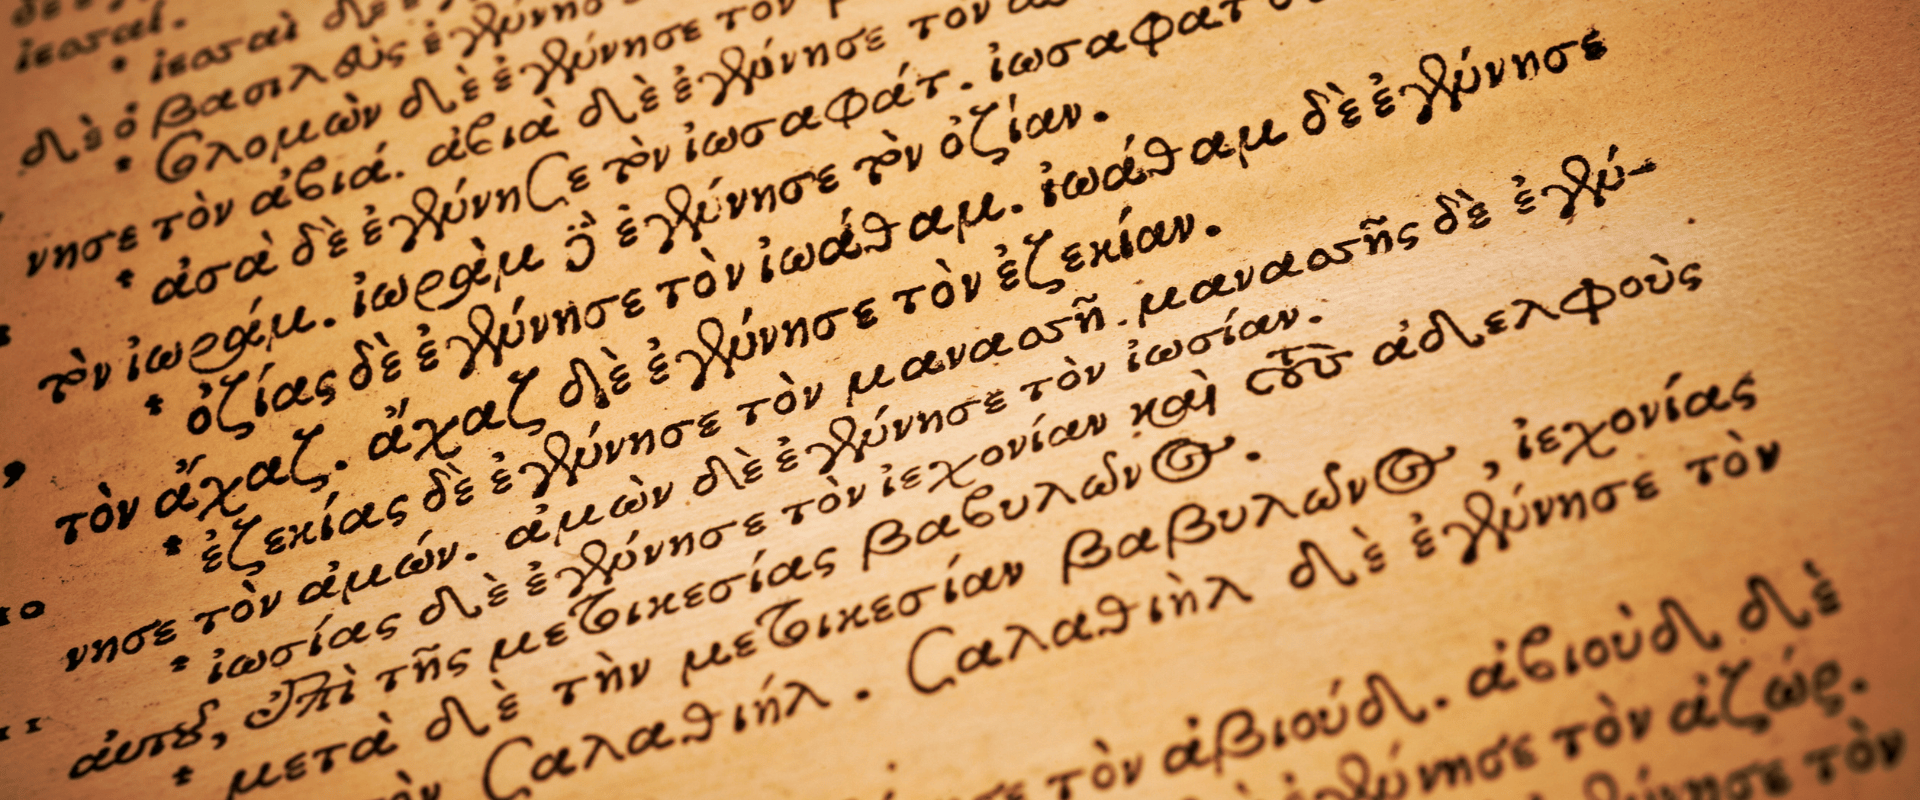 ἰεσσαί.
* ἰεσσαὶ δὲ
δὲ ὁ βασιλεὺς ἐγέννησε
* Σολομὼν δὲ ἐγέννησε τὸν
νησε τὸν ἀβιά. ἀβιὰ δὲ ἐγέννησε τὸν
* ἀσὰ δὲ ἐγέννησε τὸν ἰωσαφάτ. ἰωσαφὰτ
τὸν ἰωράμ. ἰωρὰμ δὲ ἐγέννησε τὸν ὀζίαν.
* ὀζίας δὲ ἐγέννησε τὸν ἰωάθαμ. ἰωάθαμ δὲ ἐγέννησε
τὸν ἄχαζ. ἄχαζ δὲ ἐγέννησε τὸν ἐζεκίαν.
* ἐζεκίας δὲ ἐγέννησε τὸν μανασσῆ. μανασσῆς δὲ ἐγέν-
νησε τὸν ἀμών. ἀμὼν δὲ ἐγέννησε τὸν ἰωσίαν.
* ἰωσίας δὲ ἐγέννησε τὸν ἰεχονίαν καὶ τοὺς ἀδελφοὺς
αὐτοῦ, ἐπὶ τῆς μετοικεσίας βαβυλῶνος.
* μετὰ δὲ τὴν μετοικεσίαν βαβυλῶνος, ἰεχονίας
τὸν Σαλαθιήλ. Σαλαθιὴλ δὲ ἐγέννησε τὸν
σε τὸν ἀβιούδ. ἀβιοὺδ δὲ
ἐγέννησε τὸν ἀζώρ.
γέννησε τὸν